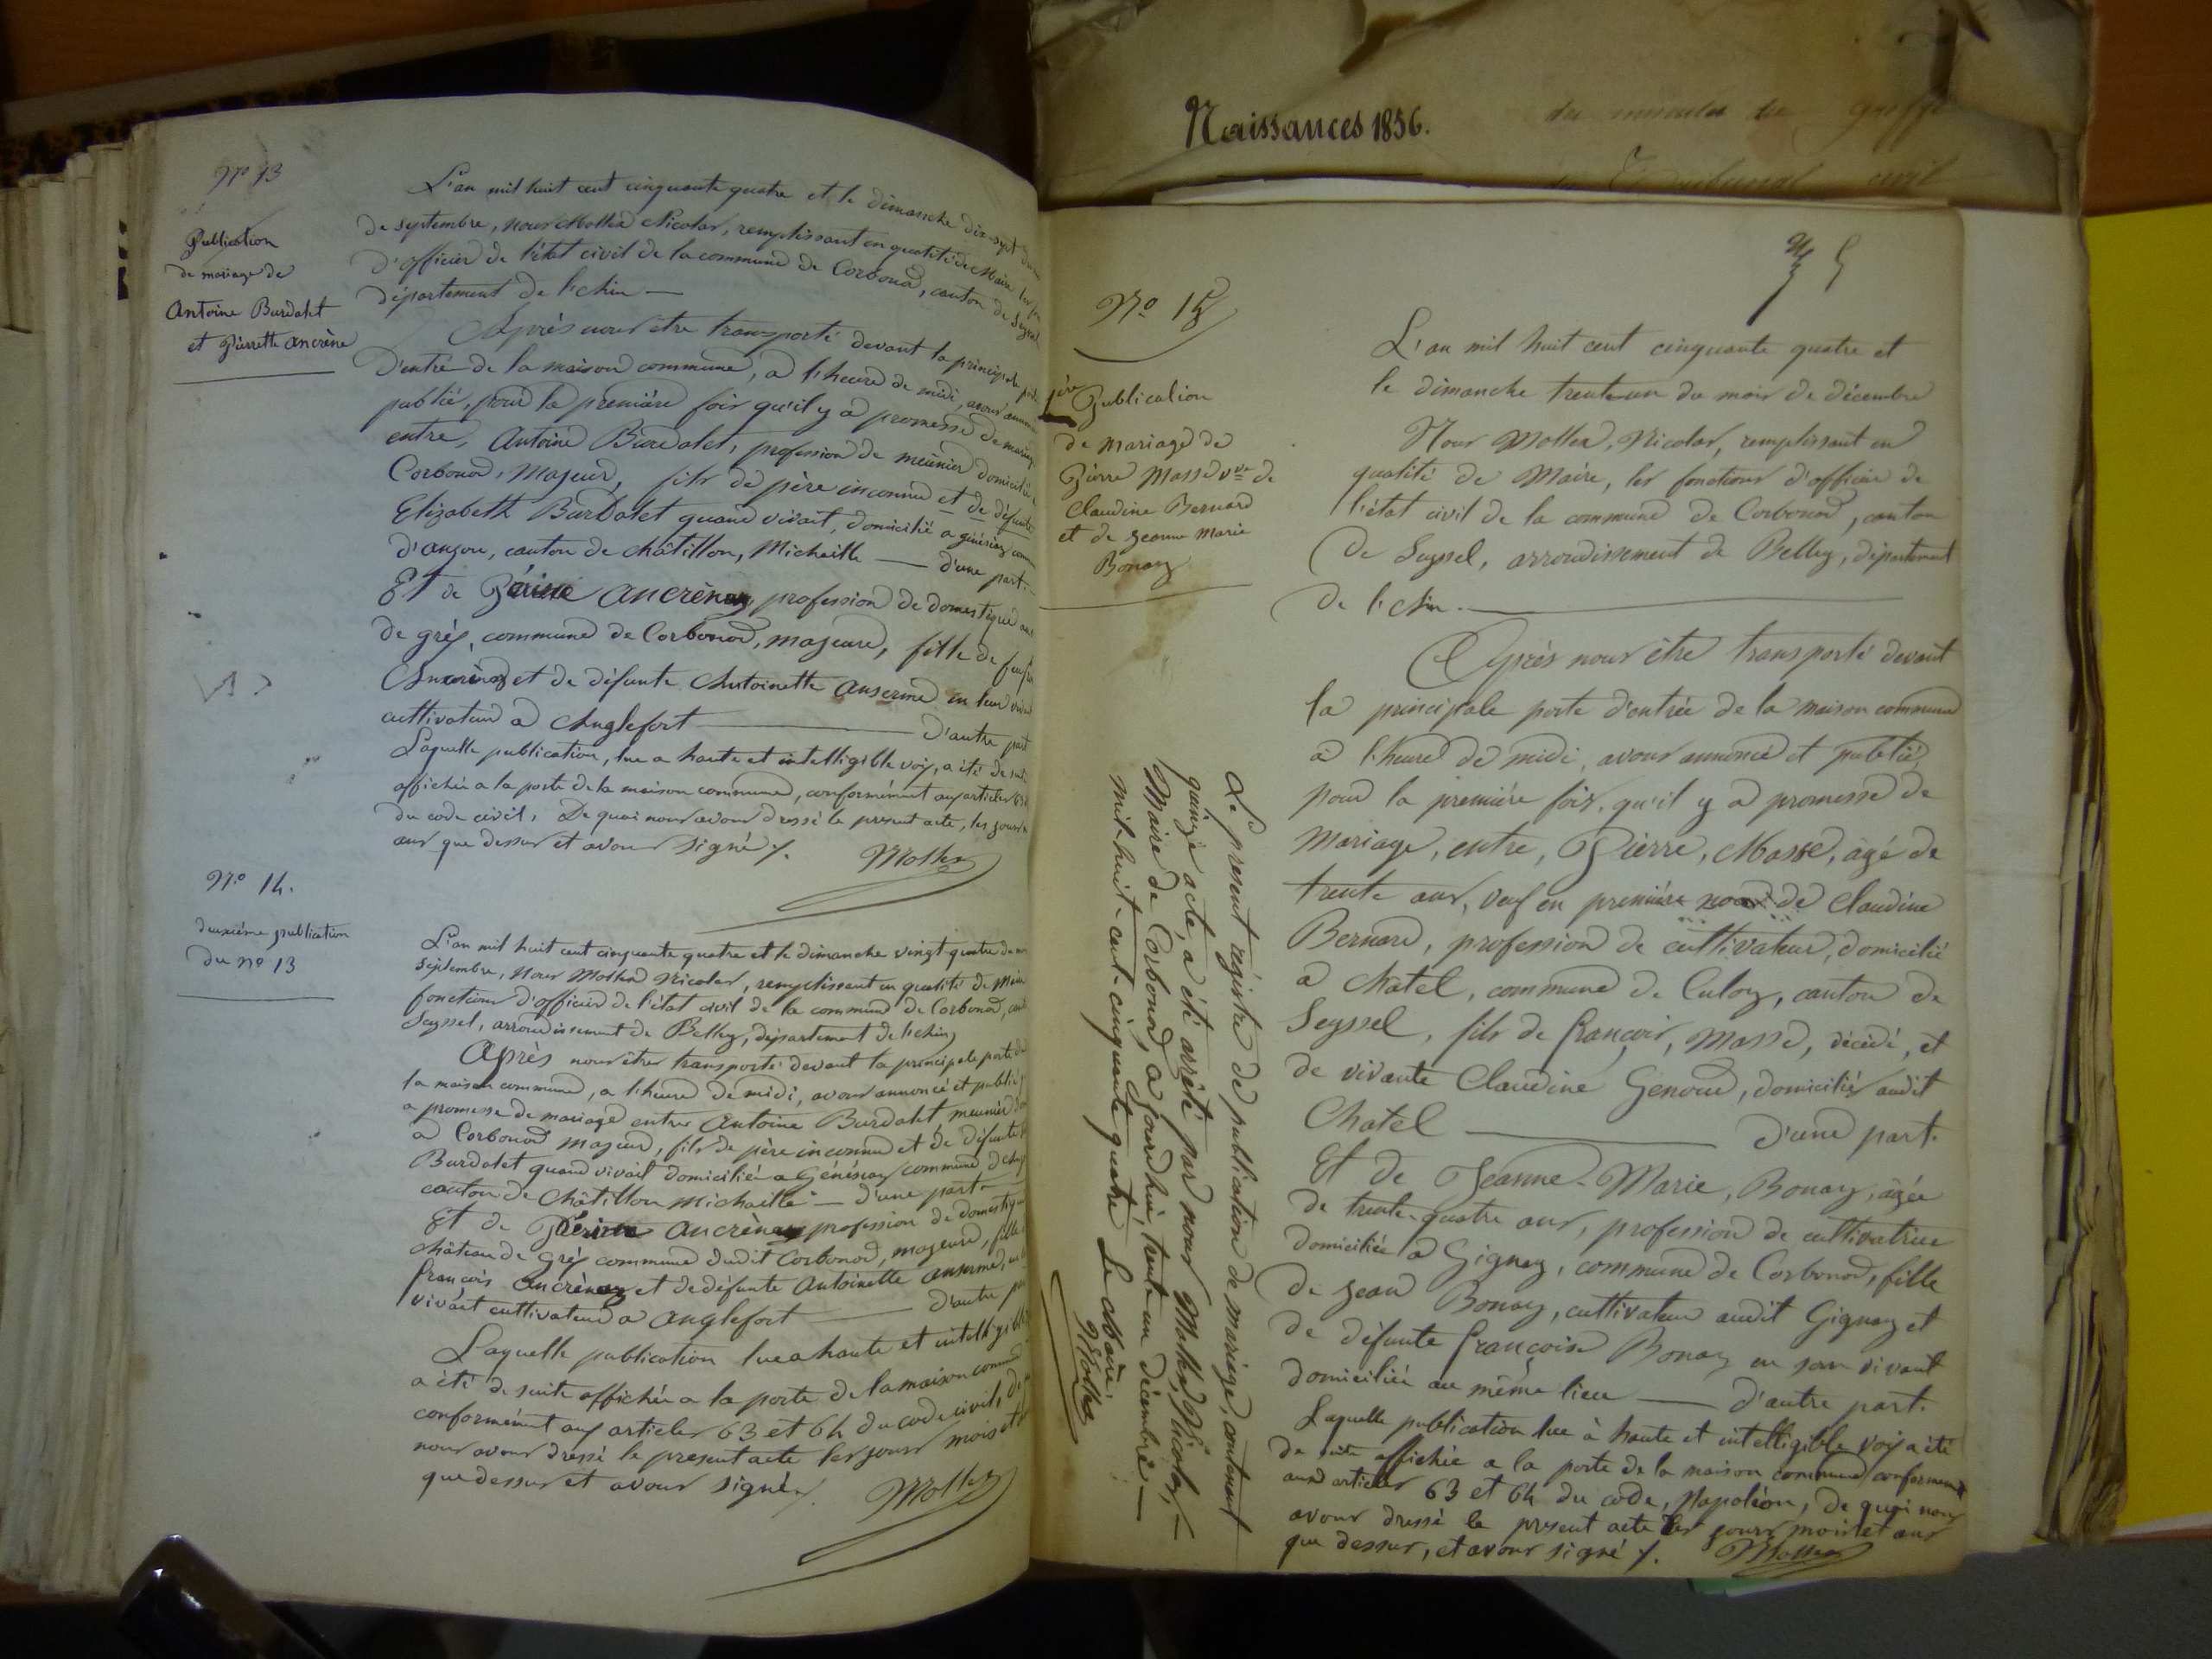 Nº 13
Publication
de mariage de
Antoine Burdalet
et Pierrette ancrène
L'an mil huit cent cinquante quatre et le dimanche dix-sept du
de septembre, nous Mollex Nicolas, remplissant en qualité de Maire les
d'officier de l'état civil de la commune de Corbonod, canton de Seyssel
département de l'Ain —
Après nous être transporté devant la principale porte
d'entrée de la maison commune, a l'heure de midi, avons
publié, pour la première fois qu'il y a promesse de mariage
entre, Antoine Burdalet, profession de meunier domicilié
Corbonod, Majeur, fils de père inconnu et de défunte
Elizabeth Burdalet quand vivait, domicilié a
canton de châtillon, Michaille — d'une part.
Et de ancrènaz profession de domestique
de gréx, commune de Corbonod, majeure, fille de feu
et de défunte Antoinette anserme en leur
cultivateur a Anglefort — d'autre part
Laquelle publication, lue a haute et intelligible voix, a été de suite
affichée a la porte de la maison commune, conformément aux articles 63
du code civil, De quoi nous avons dressé le present acte, les jours
ans que dessus et avons signé /.
Mollex
Nº 14.
deuxième publication
du nº 13
L'an mil huit cent cinquante quatre et le dimanche vingt quatre du
septembre, Nous Mollex Nicolas, remplissant en qualité de Maire
fonctions d'officier de l'état civil de la commune de Corbonod,
Seyssel, arrondissement de Belley, département de l'Ain
Après nous être transporté devant la principale porte
la maison commune, a l'heure de midi, avons annoncé et publié
a promesse de mariage entre Antoine Burdalet, meunier
a Corbonod majeur, fils de père inconnu et de défunte
Burdalet quand vivait domicilié a commune
canton de Châtillon Michaille — d'une part —
Et de ancrènaz profession de domestique
château de gréx commune dudit Corbonod, majeure, fille
françois ancrènaz et de défunte Antoinette anserme,
vivait cultivateur a anglefort — d'autre part
Laquelle publication lue a haute et intelligible
a été de suite affichée a la porte de la maison commune
conformément aux articles 63 et 64 du code civil, de
nous avons dressé le present acte les jours mois et
que dessus et avons signé /.
Mollex
Naissances 1856.
greffe
Tribunal civil
Nº 15
1ère Publication
de mariage de
Pierre Masse vve de
Claudine Bernard
et de Jeanne Marie
Bonaz
L'an mil huit cent cinquante quatre et
le dimanche trente-un du mois de décembre
Nous Mollex, Nicolas, remplissant en
qualité de Maire, les fonctions d'officier de
l'état civil de la commune de Corbonod, canton
de Seyssel, arrondissement de Belley, département
de l'Ain. —
Après nous être transporté devant
la principale porte d'entrée de la maison commune
à l'heure de midi, avons annoncé et publié
pour la première fois, qu'il y a promesse de
Mariage, entre, Pierre, Masse, âgé de
trente ans, veuf en première de Claudine
Bernard, profession de cultivateur, domicilié
a Chatel, commune de Culoz, canton de
Seyssel, fils de françois, Masse, décédé, et
de vivante Claudine Genoud, domiciliés audit
Chatel — d'une part.
Et de Jeanne-Marie, Bonaz, âgée
de trente-quatre ans, profession de cultivatrice
domiciliée a Gignez, commune de Corbonod, fille
de Jean Bonaz, cultivateur audit Gignez et
de défunte françoise Bonaz en son vivant
domiciliée au même lieu — d'autre part.
Laquelle publication lue à haute et intelligible voix a été
de suite affichée a la porte de la maison commune conformement
aux articles 63 et 64 du code, Napoléon, de quoi nous
avons dressé le present acte les jours mois et ans
que dessus, et avons signé /. Mollex
Le present régistre de publication de mariage, contenant
quinze acte, a été arrêté par nous Mollex, Nicolas, —
Maire de Corbonod, a jourd'hui, trente un décembre —
mil-huit-cent-cinquante quatre Le Maire,
Mollex